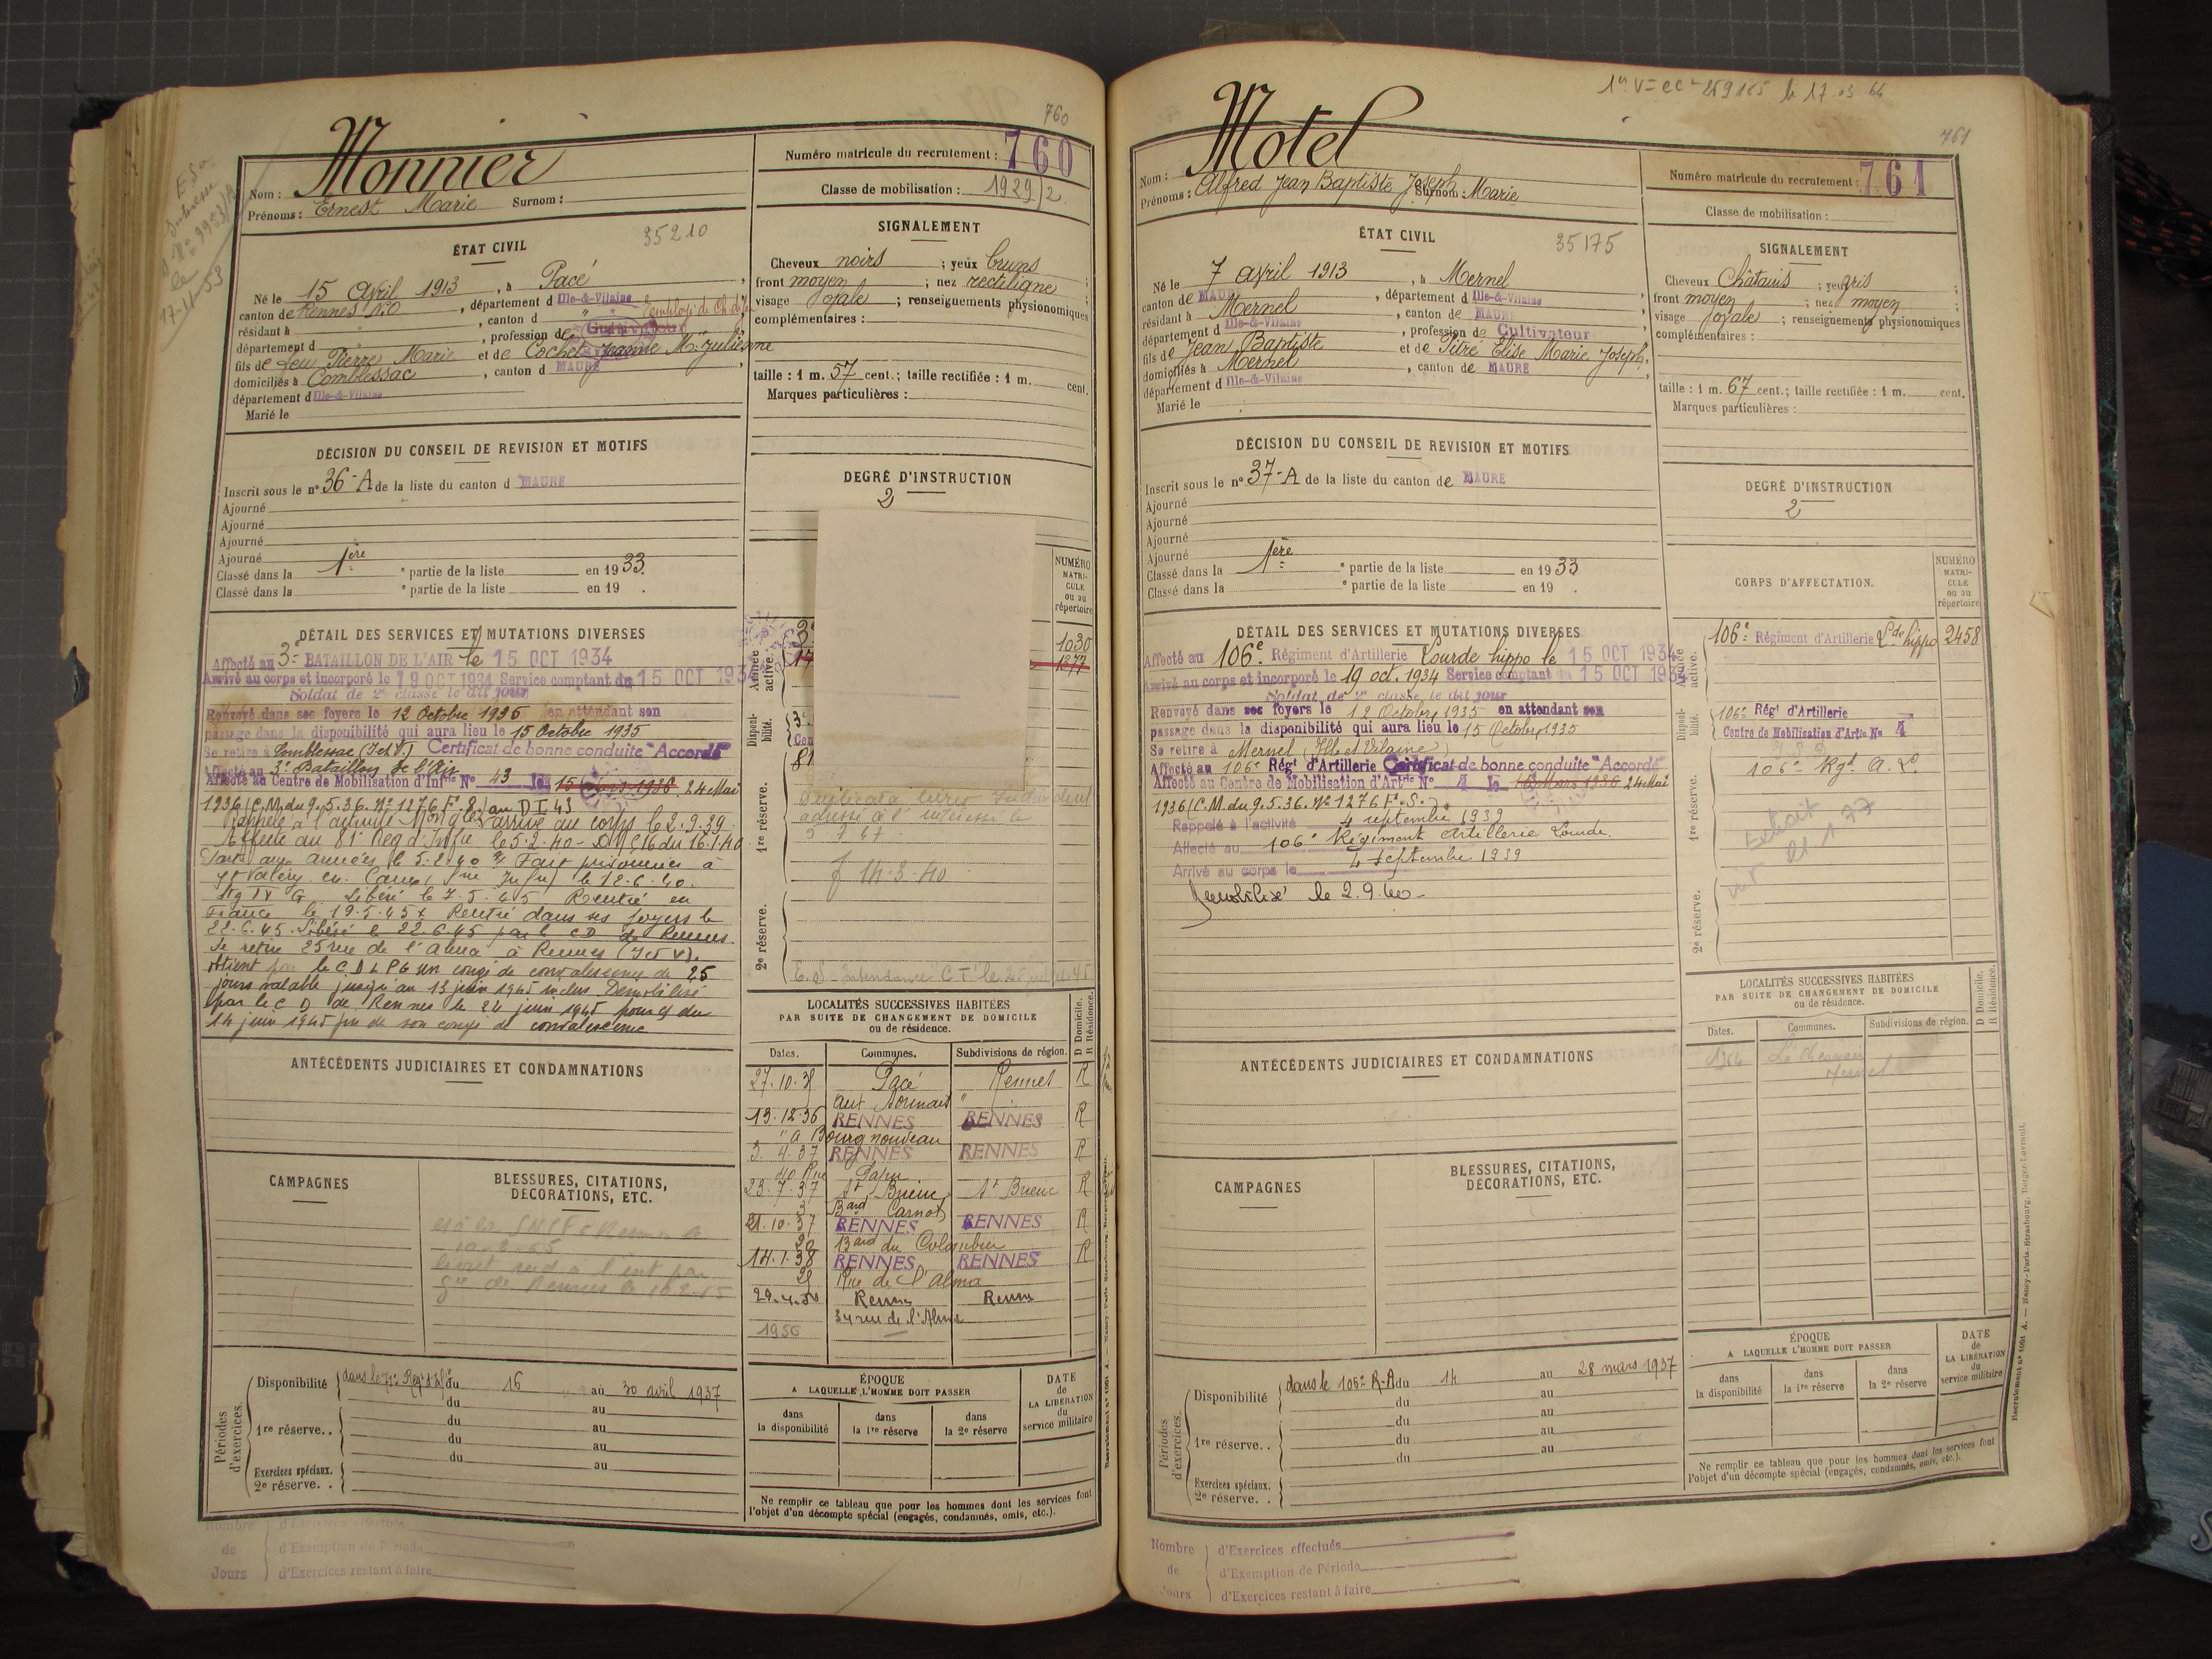 760
Monnier
Nom :
Prénoms : Ernest Marie Surnom :
Numéro matricule du recrutement : 760
Classe de mobilisation : 1929/2.
ÉTAT CIVIL
35210
Né le 15 Avril 1913, à Pacé
canton de Rennes N.O, département d Ille-&-Vilaine
résidant à " , canton d "
département d , profession de Cultivateur
fils de feu Pierre Marie et de Cochet Jeanne Mie Julienne
domiciliés à Comblessac, canton d MAURE
département d Ille-&-Vilaine
Marié le
SIGNALEMENT
Cheveux noirs ; yeux bruns ;
front moyen ; nez rectiligne ;
visage ovale ; renseignements physionomiques
complémentaires :
taille : 1 m. 57 cent.; taille rectifiée : 1 m. cent.
Marques particulières :
DÉCISION DU CONSEIL DE REVISION ET MOTIFS
Inscrit sous le n° 36-A de la liste du canton d MAURE
Ajourné
Ajourné
Ajourné
Ajourné
Classé dans la 1ère e partie de la liste en 1933.
Classé dans la e partie de la liste en 19 .
DEGRÉ D'INSTRUCTION
2
NUMÉRO
MATRI-
CULE
ou au
répertoire
1030
1377
DÉTAIL DES SERVICES ET MUTATIONS DIVERSES
Affecté au 3e BATAILLON DE L'AIR le 15 OCT 1934
Arrivé au corps et incorporé le 19 OCT 1934 Service comptant du 15 OCT 1934
Soldat de 2e classe le dit jour
Renvoyé dans ses foyers le 12 Octobre 1935 en attendant son
passage dans la disponibilité qui aura lieu le 15 Octobre 1935
Se retire à Comblessac (I et V.) Certificat de bonne conduite "Accordé"
Affecté au 3e Bataillon de l'Air
Affecté au Centre de Mobilisation d'Inftie N° 43 le 15 Mars 1936. 24 Mai
1936 (C.M. du 9.5.36. N° 1276 F.S.) au D I 43
Rappelé à l'activité arrivé au corps le 2.9.39
Affecté au 81e Reg d'Infie le 5.2.40 - du 16.1.40
Parti aux armées le 5.2.40 Fait prisonnier à
St Valéry en Caux (Sne Infre) le 12.6.40.
Stg IV G Libéré le 7.5.45 Rentré en
France le 19.5.45 Rentré dans ses foyers le
22.6.45. Libéré le 22.6.45 par le CD de Rennes.
Se retire 25 rue de l'Alma à Rennes (I et V).
obtient par le C D L P G un congé de convalescence de 25
jours valable jusqu'au 13 juin 1945 inclus Démobilisé
par le C D de Rennes le 24 juin 1945 pour cj du
14 juin 1945 fin de son congé de convalescence
Armée active.
Disponi-bilité.
1re réserve.
adressé à l'intéressé le
3 7 47
14-3-40
2e réserve.
LOCALITÉS SUCCESSIVES HABITÉES
PAR SUITE DE CHANGEMENT DE DOMICILE
ou de résidence.
D Domicile.
R Résidence.
Dates. Communes. Subdivisions de région.
27.10.35 Pacé Rennes R
13.12.36 RENNES RENNES R
" a Bourg nouveau
3.4.37 RENNES RENNES R
40 Rue Papu
23.7.37 St Brieuc St Brieuc R
3 Bard Carnot
21.10.37 RENNES RENNES R
20 Bard du Colombier
14.1.38 RENNES RENNES R
25 Rue de l'Alma
29.4.50 Rennes Rennes
34 rue de l'Alma
1950
ANTÉCÉDENTS JUDICIAIRES ET CONDAMNATIONS
CAMPAGNES
BLESSURES, CITATIONS,
DÉCORATIONS, ETC.
Périodes d'exercices.
Disponibilité dans le Régt d'Inf du 16 au 30 avril 1937
du au
1re réserve.. du au
du au
du au
Exercices spéciaux.
2e réserve. .
ÉPOQUE
A LAQUELLE L'HOMME DOIT PASSER
dans la disponibilité
dans la 1re réserve
dans la 2e réserve
DATE
de
LA LIBÉRATION
du
service militaire
Ne remplir ce tableau que pour les hommes dont les services font
l'objet d'un décompte spécial (engagés, condamnés, omis, etc.).
Nombre de Jours
d'Exercices effectués
d'Exemption de Période
d'Exercices restant à faire
761
Motel
Nom :
Prénoms : Alfred Jean Baptiste Joseph Surnom : Marie
Numéro matricule du recrutement : 761
Classe de mobilisation :
ÉTAT CIVIL
35175
Né le 7 avril 1913, à Mernel
canton de MAURE, département d Ille-&-Vilaine
résidant à Mernel, canton de MAURE
département d Ille-&-Vilaine, profession de Cultivateur
fils de Jean Baptiste et de Pitré Elise Marie Joseph,
domiciliés à Mernel, canton de MAURE
département d Ille-&-Vilaine
Marié le
SIGNALEMENT
Cheveux Châtains ; yeux gris ;
front moyen ; nez moyen ;
visage ovale ; renseignements physionomiques
complémentaires :
taille : 1 m. 67 cent.; taille rectifiée : 1 m. cent.
Marques particulières :
DÉCISION DU CONSEIL DE REVISION ET MOTIFS
Inscrit sous le n° 37-A de la liste du canton de MAURE
Ajourné
Ajourné
Ajourné
Ajourné
Classé dans la 1ère e partie de la liste en 1933
Classé dans la e partie de la liste en 19 .
DEGRÉ D'INSTRUCTION
2
CORPS D'AFFECTATION.
NUMÉRO
MATRI-
CULE
ou au
répertoire
DÉTAIL DES SERVICES ET MUTATIONS DIVERSES
Affecté au 106e Régiment d'Artillerie Lourde hippo le 15 OCT 1934
Arrivé au corps et incorporé le 19 oct. 1934 Service comptant du 15 OCT 1934
Soldat de 2e classe le dit jour
Renvoyé dans ses foyers le 12 Octobre 1935 en attendant son
passage dans la disponibilité qui aura lieu le 15 Octobre 1935
Se retire à Mernel (Ille et Vilaine)
Affecté au 106e Régt d'Artillerie Certificat de bonne conduite "Accordé"
Affecté au Centre de Mobilisation d'Artie N° 4 le 15 Mars 1936 24 Mai
1936 (C.M. du 9.5.36. N° 1276 F.S.)
Rappelé à l'activité 4 septembre 1939
Affecté au 106e Régiment Artillerie Lourde.
Arrivé au corps le 4 septembre 1939
Démobilisé le 2.9.40
Armée active.
106e Régiment d'Artillerie Lde hippo 2458
Disponi-bilité.
106e Régt d'Artillerie
Centre de Mobilisation d'Artie N° 4
1re réserve.
106e Rgt A. Ld
Extrait
21 1 77
2e réserve.
LOCALITÉS SUCCESSIVES HABITÉES
PAR SUITE DE CHANGEMENT DE DOMICILE
ou de résidence.
D Domicile.
R Résidence.
Dates. Communes. Subdivisions de région.
Mernel
ANTÉCÉDENTS JUDICIAIRES ET CONDAMNATIONS
CAMPAGNES
BLESSURES, CITATIONS,
DÉCORATIONS, ETC.
Périodes d'exercices.
Disponibilité dans le 106e R.A du 14 au 28 mars 1937
du au
du au
1re réserve. . du au
du au
Exercices spéciaux.
2e réserve. .
ÉPOQUE
A LAQUELLE L'HOMME DOIT PASSER
dans la disponibilité
dans la 1re réserve
dans la 2e réserve
DATE
de
LA LIBÉRATION
du
service militaire
Ne remplir ce tableau que pour les hommes dont les services font
l'objet d'un décompte spécial (engagés, condamnés, omis, etc.).
Nombre de Jours
d'Exercices effectués
d'Exemption de Période
d'Exercices restant à faire